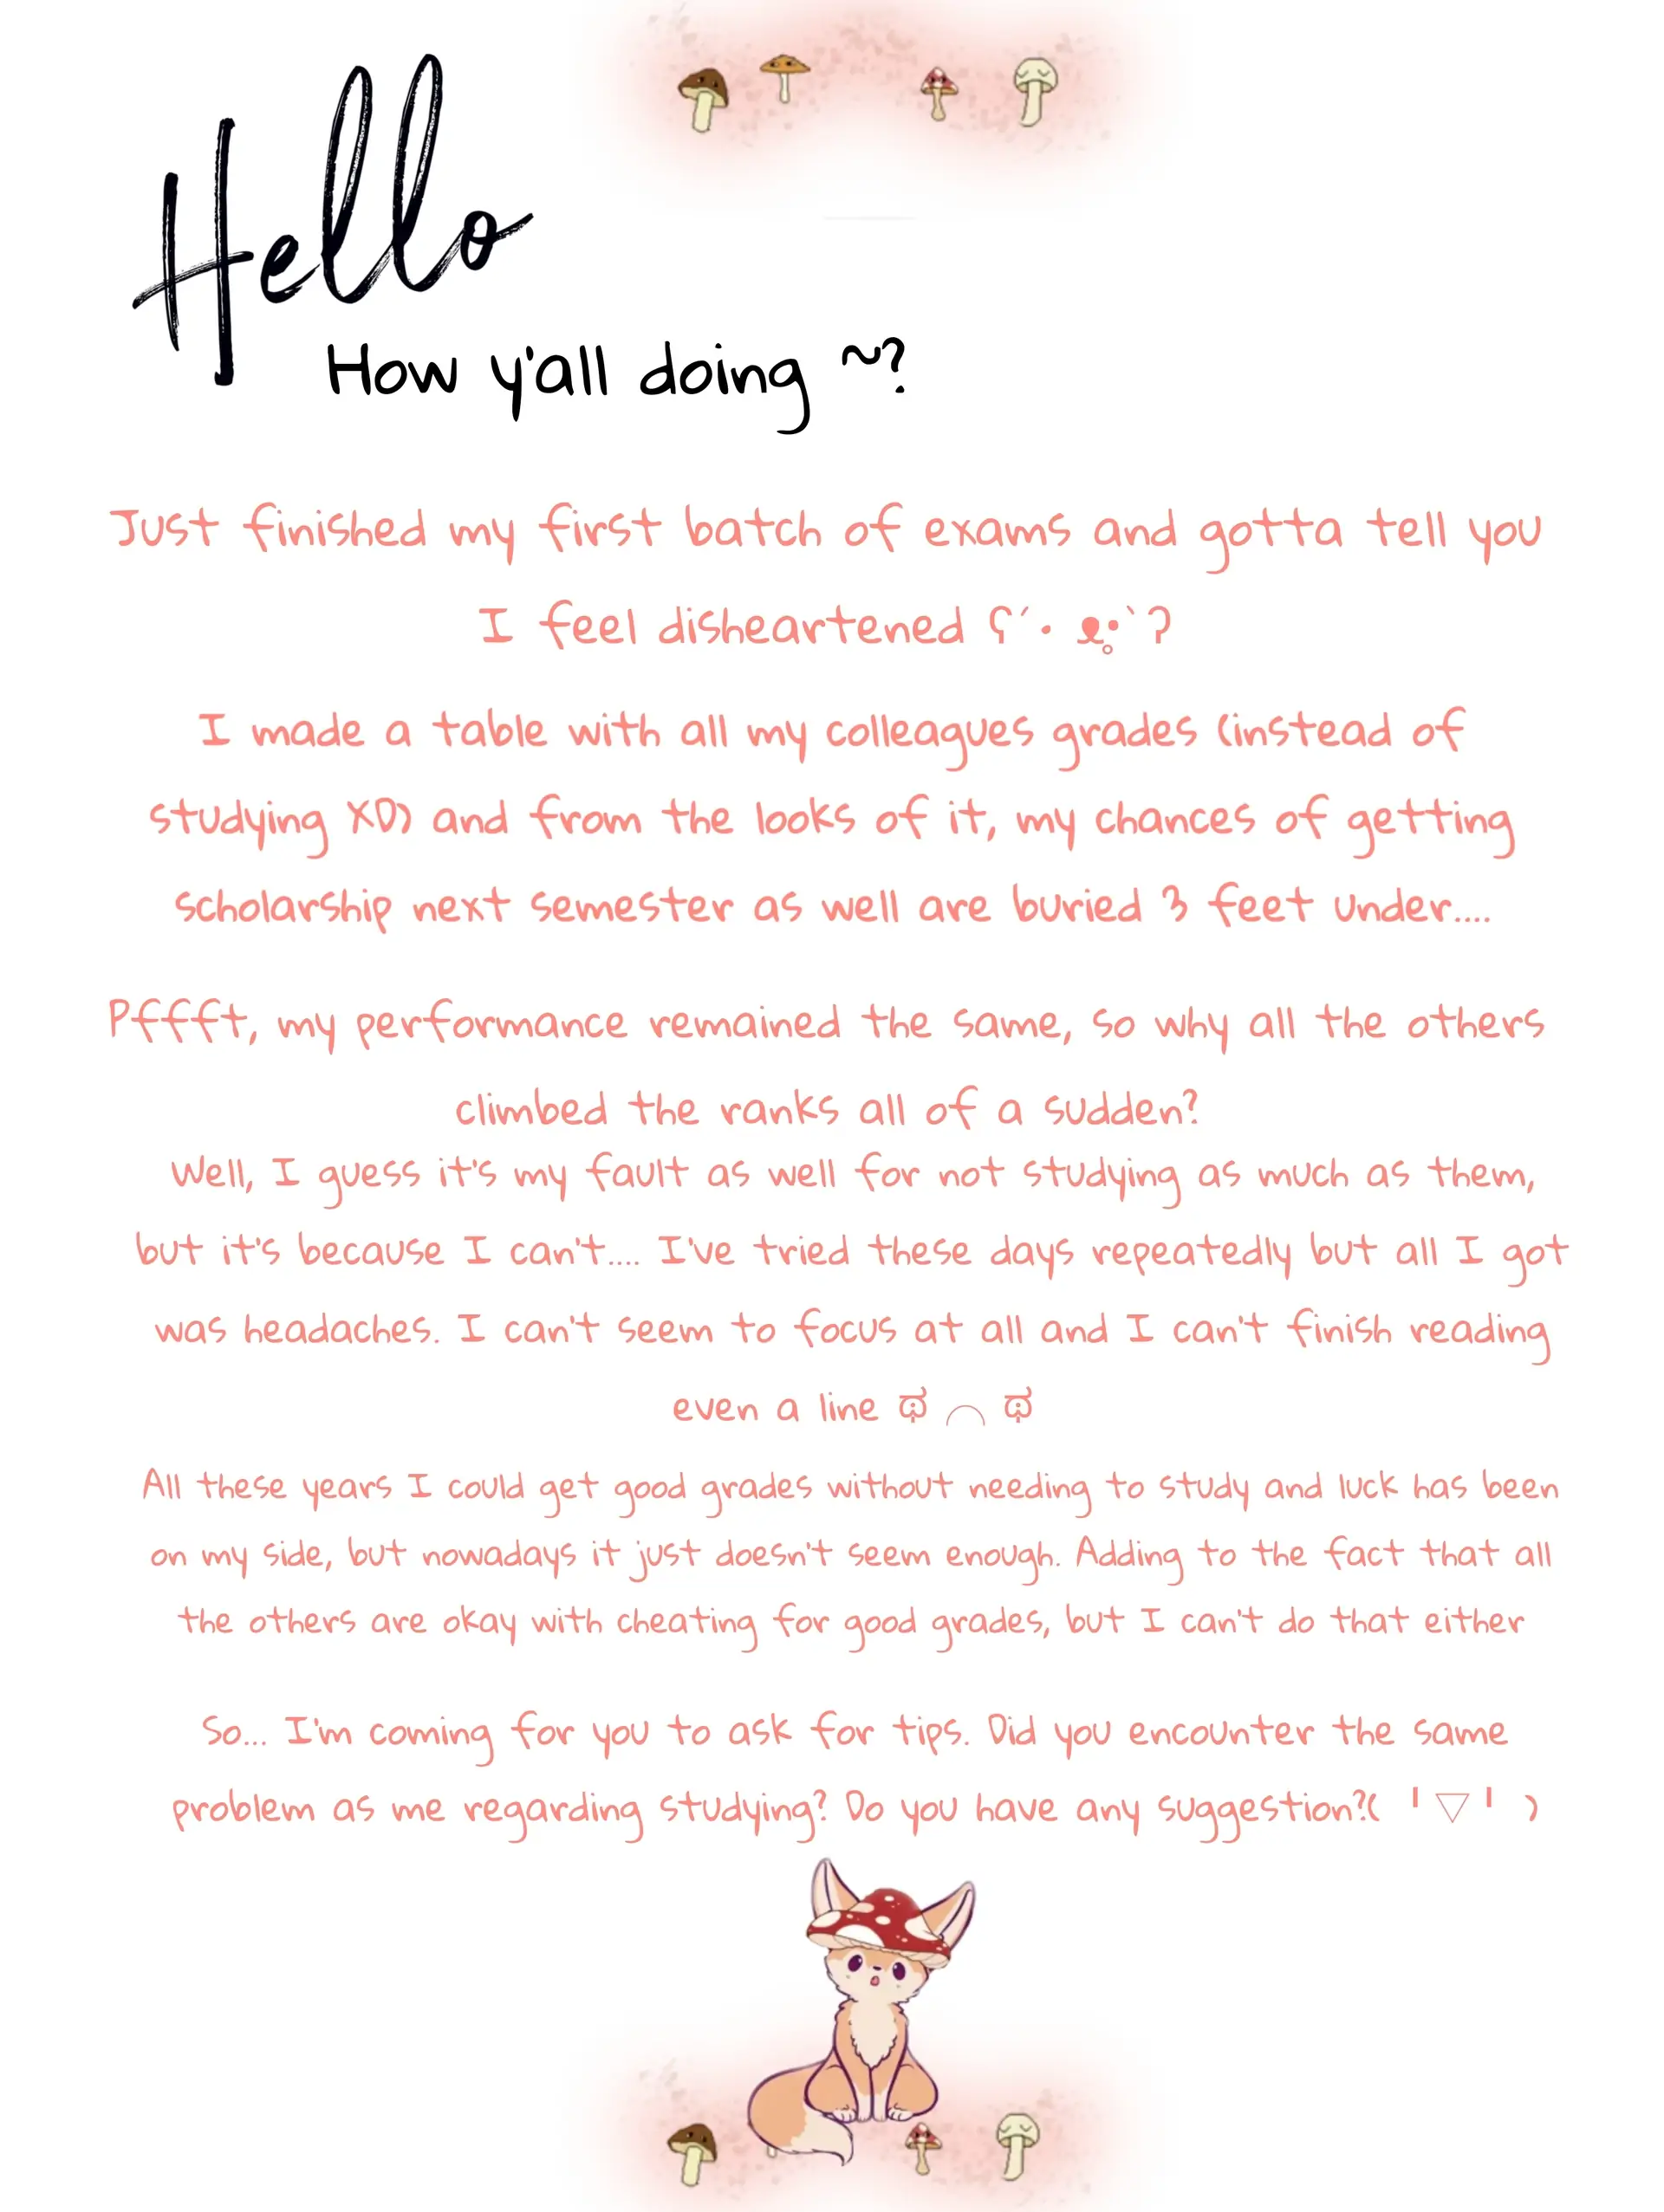 Hello
How y'all doing ~?
Just finished my first batch of exams and gotta tell you
I feel disheartened ʕ´• ᴥ•̥`ʔ
I made a table with all my colleagues grades (instead of
studying XD) and from the looks of it, my chances of getting
scholarship next semester as well are buried 3 feet under....
Pffft, my performance remained the same, so why all the others
climbed the ranks all of a sudden?
Well, I guess it's my fault as well for not studying as much as them,
but it's because I can't.... I've tried these days repeatedly but all I got
was headaches. I can't seem to focus at all and I can't finish reading
even a line ಥ ⌒ ಥ
All these years I could get good grades without needing to study and luck has been
on my side, but nowadays it just doesn't seem enough. Adding to the fact that all
the others are okay with cheating for good grades, but I can't do that either
So... I'm coming for you to ask for tips. Did you encounter the same
problem as me regarding studying? Do you have any suggestion?( ╹▽╹ )